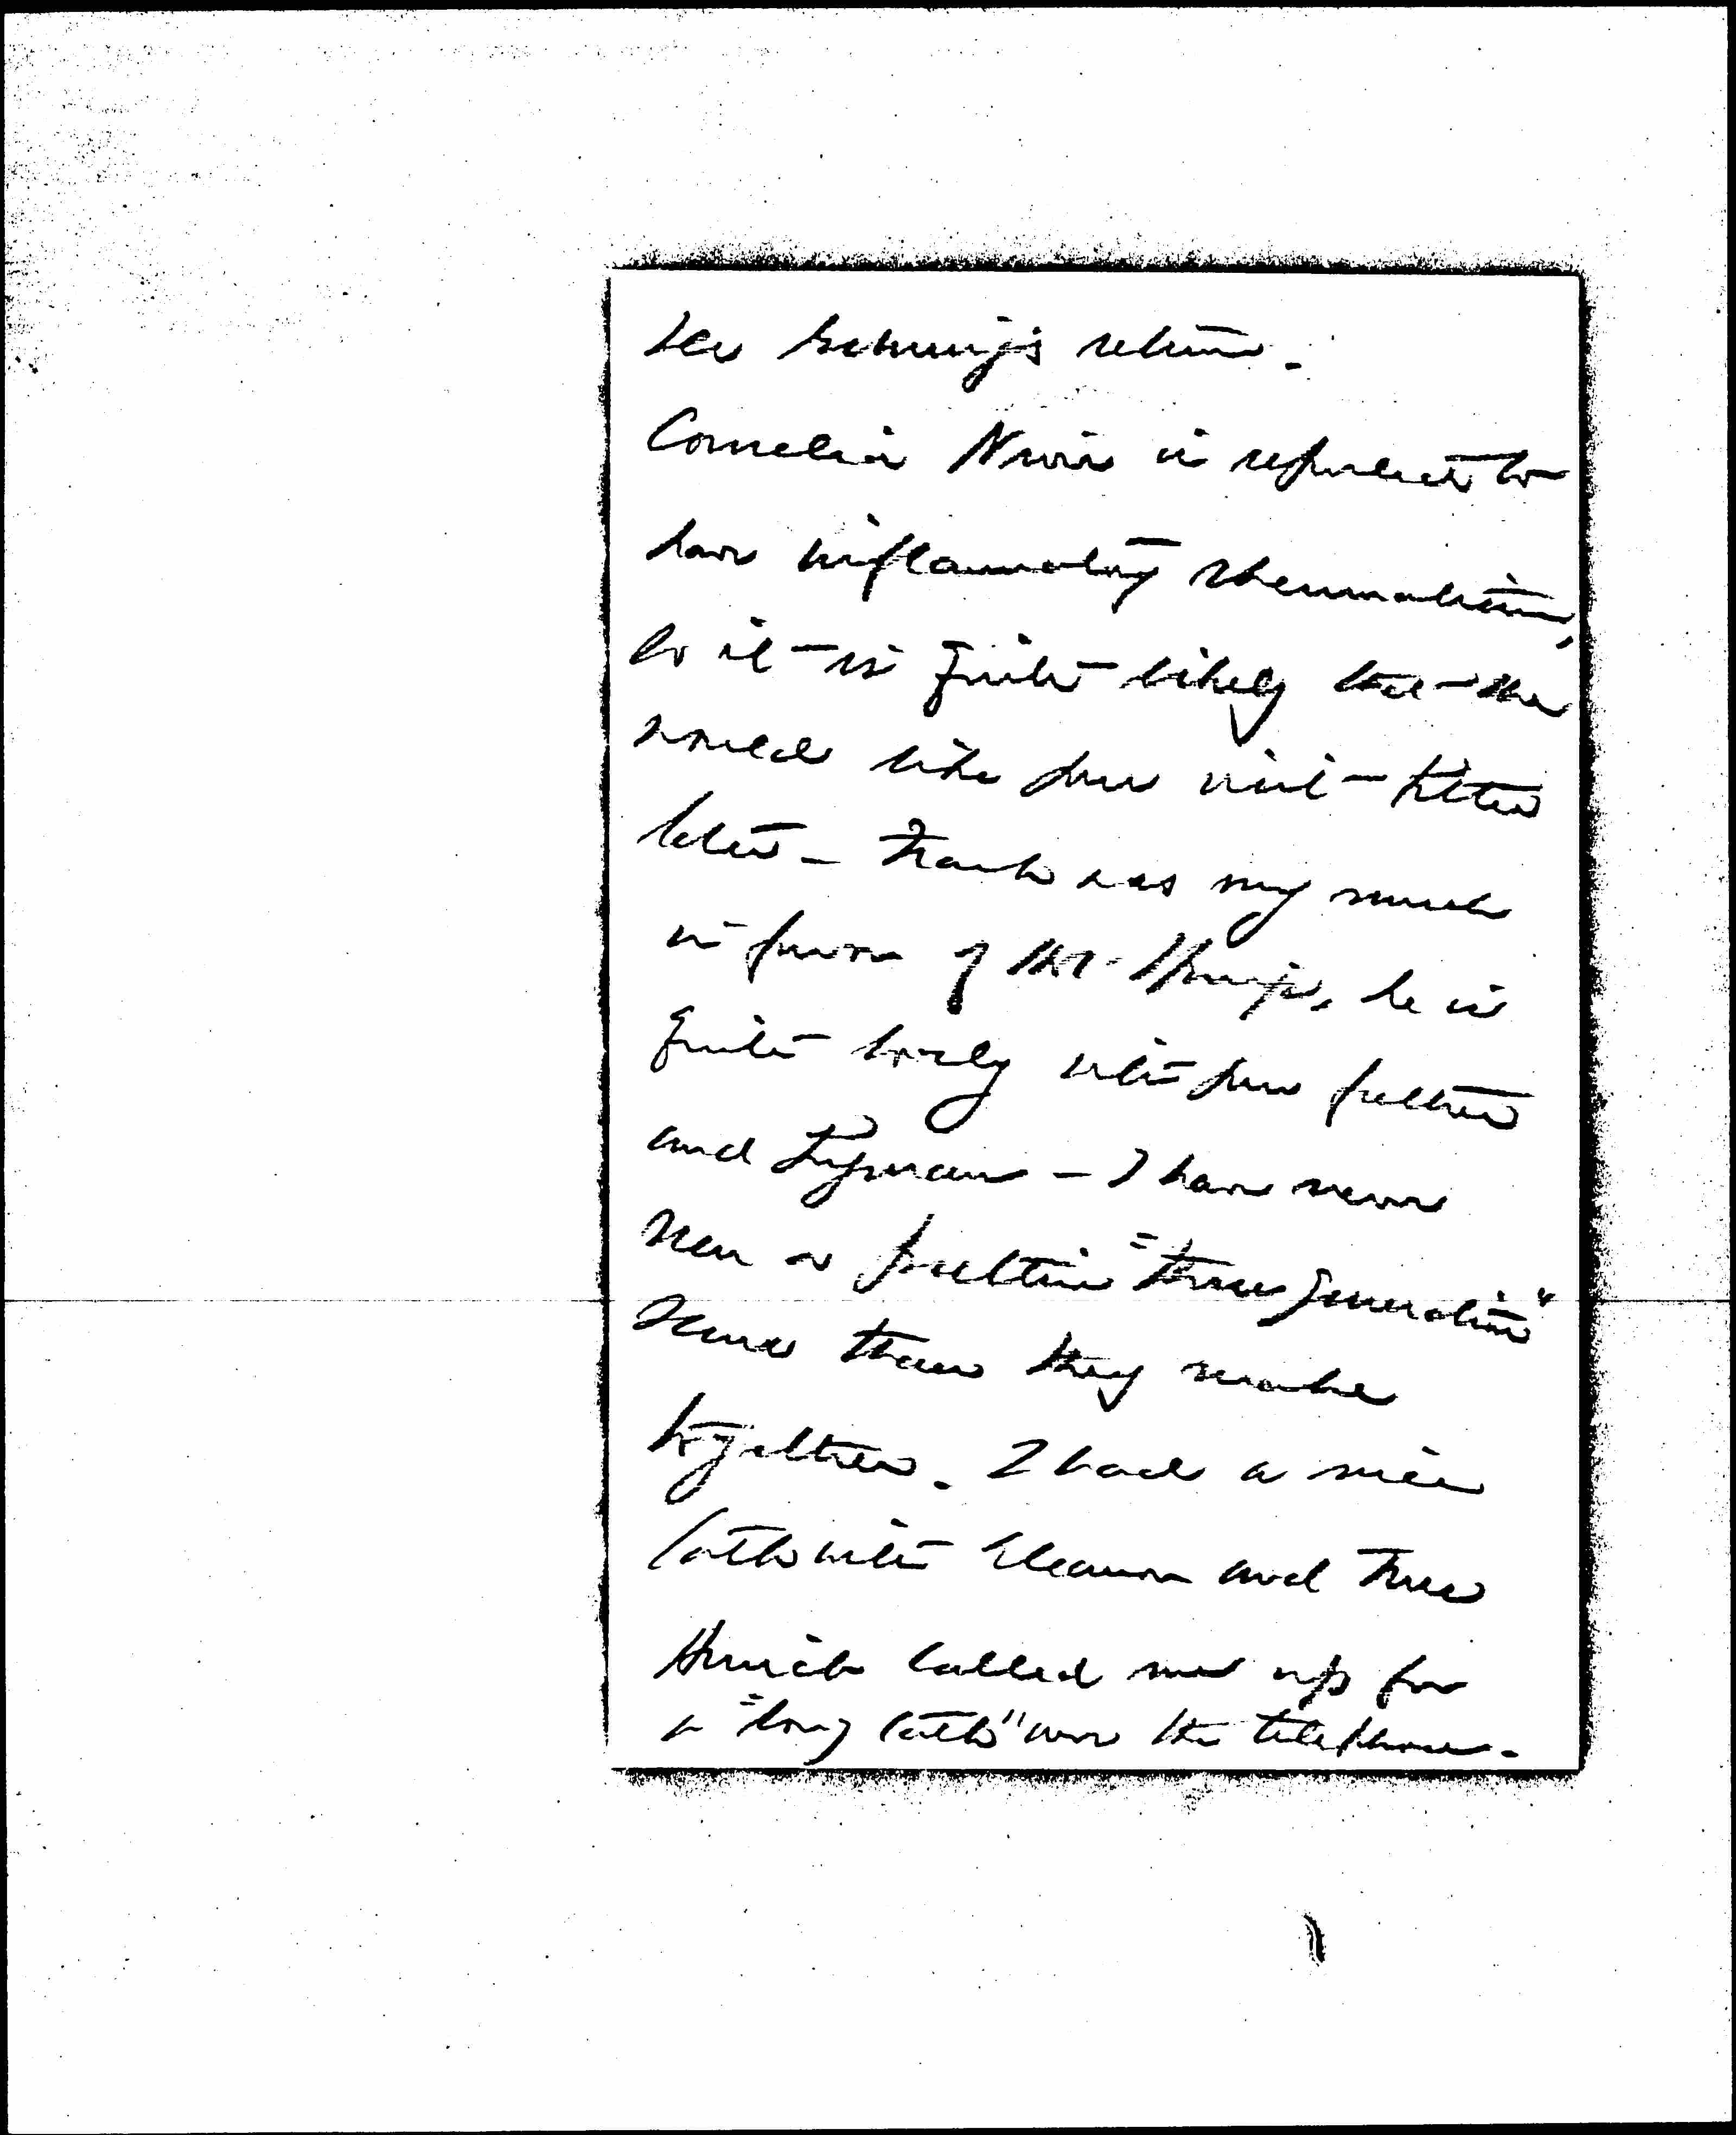 return.
Cornelia is reported to
have inflammatory rheumatism,
so it is quite likely that she
would like your visit better
later – Frank was very much
in favor of Mr. he is
quite lovely with your father
and Lyman – I have never
seen a prettier "three generation"
scene than they make
together. I had a nice
talk with Eleanor and
called me up for
a "long talk" over the telephone.